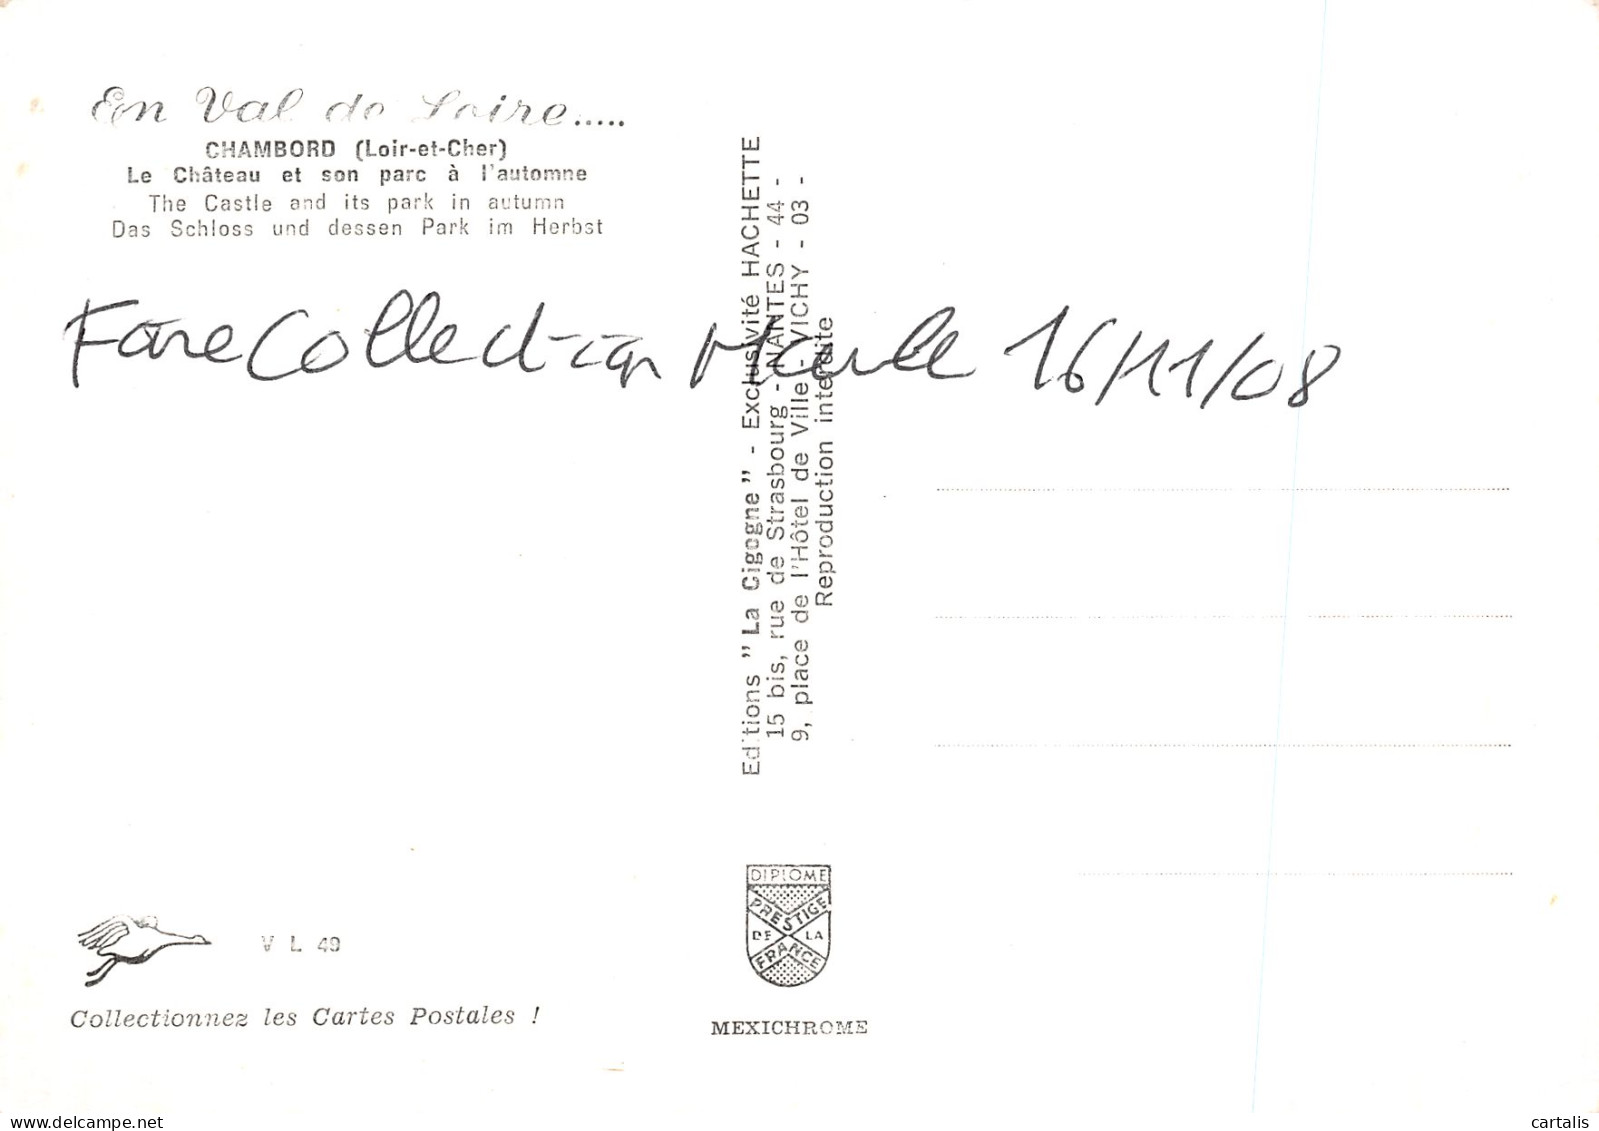 En Val de Loire.....
CHAMBORD (Loir-et-Cher)
Le Château et son parc à l'automne
The Castle and its park in autumn
Das Schloss und dessen Park im Herbst
Collection 16/11/08
Editions "La Cigogne" - Exclusivité HACHETTE
15 bis, rue de Strasbourg - NANTES - 44 -
9, place de l'Hôtel de Ville - VICHY - 03 -
Reproduction interdite
V L 49
Collectionnez les Cartes Postales !
DIPLOME
PRESTIGE
DE LA
FRANCE
MEXICHROME
cartalis